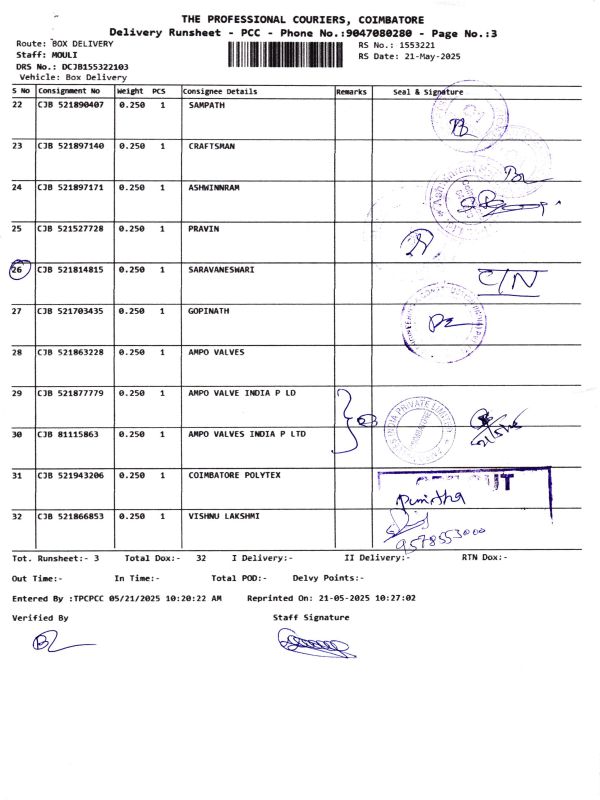 THE PROFESSIONAL COURIERS, COIMBATORE
Delivery Runsheet - PCC - Phone No.:9047080280 - Page No.:3
Route: BOX DELIVERY RS No.: 1553221
Staff: MOULI RS Date: 21-May-2025
DRS No.: DCJB155322103
Vehicle: Box Delivery
S No Consignment No Weight PCS Consignee Details Remarks Seal & Signature
22 CJB 521890407 0.250 1 SAMPATH
23 CJB 521897140 0.250 1 CRAFTSMAN
24 CJB 521897171 0.250 1 ASHWINNRAM
25 CJB 521527728 0.250 1 PRAVIN
26 CJB 521814815 0.250 1 SARAVANESWARI C/N
27 CJB 521703435 0.250 1 GOPINATH
28 CJB 521863228 0.250 1 AMPO VALVES
29 CJB 521877779 0.250 1 AMPO VALVE INDIA P LD
30 CJB 81115863 0.250 1 AMPO VALVES INDIA P LTD
INDIA PRIVATE LIMITED
31 CJB 521943206 0.250 1 COIMBATORE POLYTEX
32 CJB 521866853 0.250 1 VISHNU LAKSHMI
9578553000
Tot. Runsheet:- 3 Total Dox:- 32 I Delivery:- II Delivery:- RTN Dox:-
Out Time:- In Time:- Total POD:- Delvy Points:-
Entered By :TPCPCC 05/21/2025 10:20:22 AM Reprinted On: 21-05-2025 10:27:02
Verified By Staff Signature